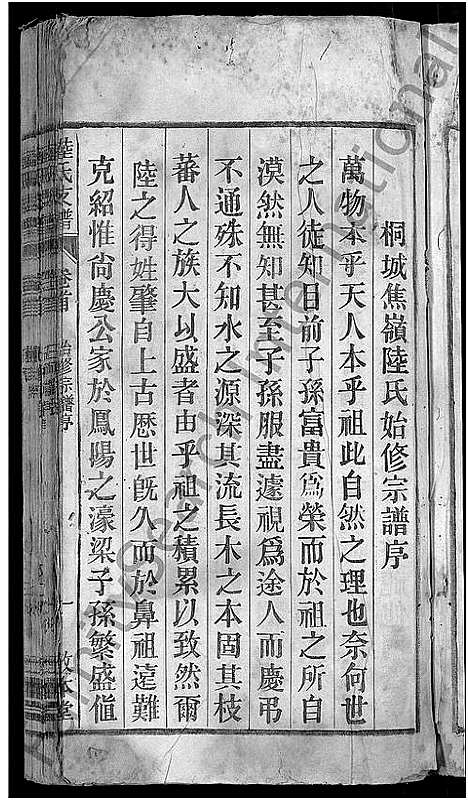 桐城焦嶺陸氏始修宗譜序
萬物本乎天人本乎祖此自然之理也奈何世
之人徒知目前子孫富貴爲榮而於祖之所自
漠然無知甚至子孫服盡遽視爲途人而慶弔
不通殊不知水之源深其流長木之本固其枝
蕃人之族大以盛者由乎祖之積累以致然爾
陸之得姓肇自上古歷世旣久而於鼻祖遠難
克紹惟尙慶公家於鳳陽之濠梁子孫繁盛值
陸氏支譜 卷首 始修宗譜序 一 敬本堂